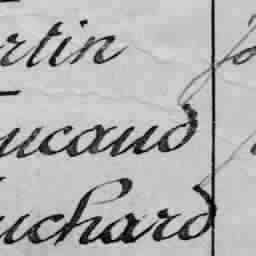 rtin
ucaud
uchard